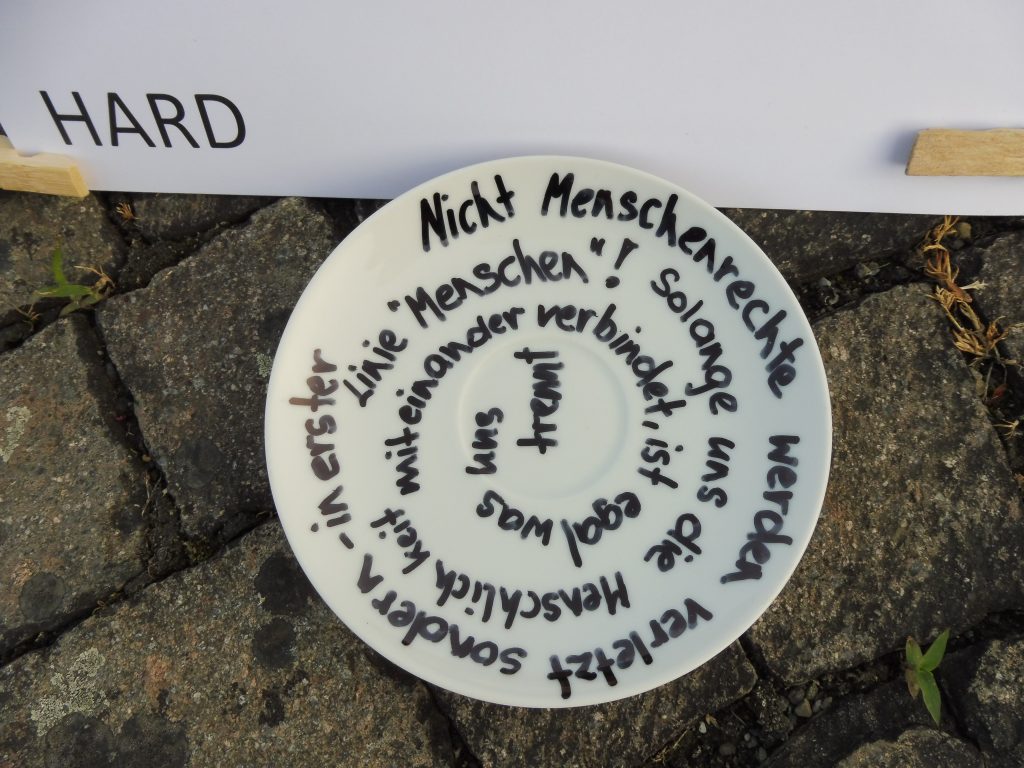 HARD
Nicht Menschenrechte werden verletzt sondern - in erster
Linie "Menschen"! Solange uns die Menschlichkeit
miteinander verbindet, ist egal was uns
trennt